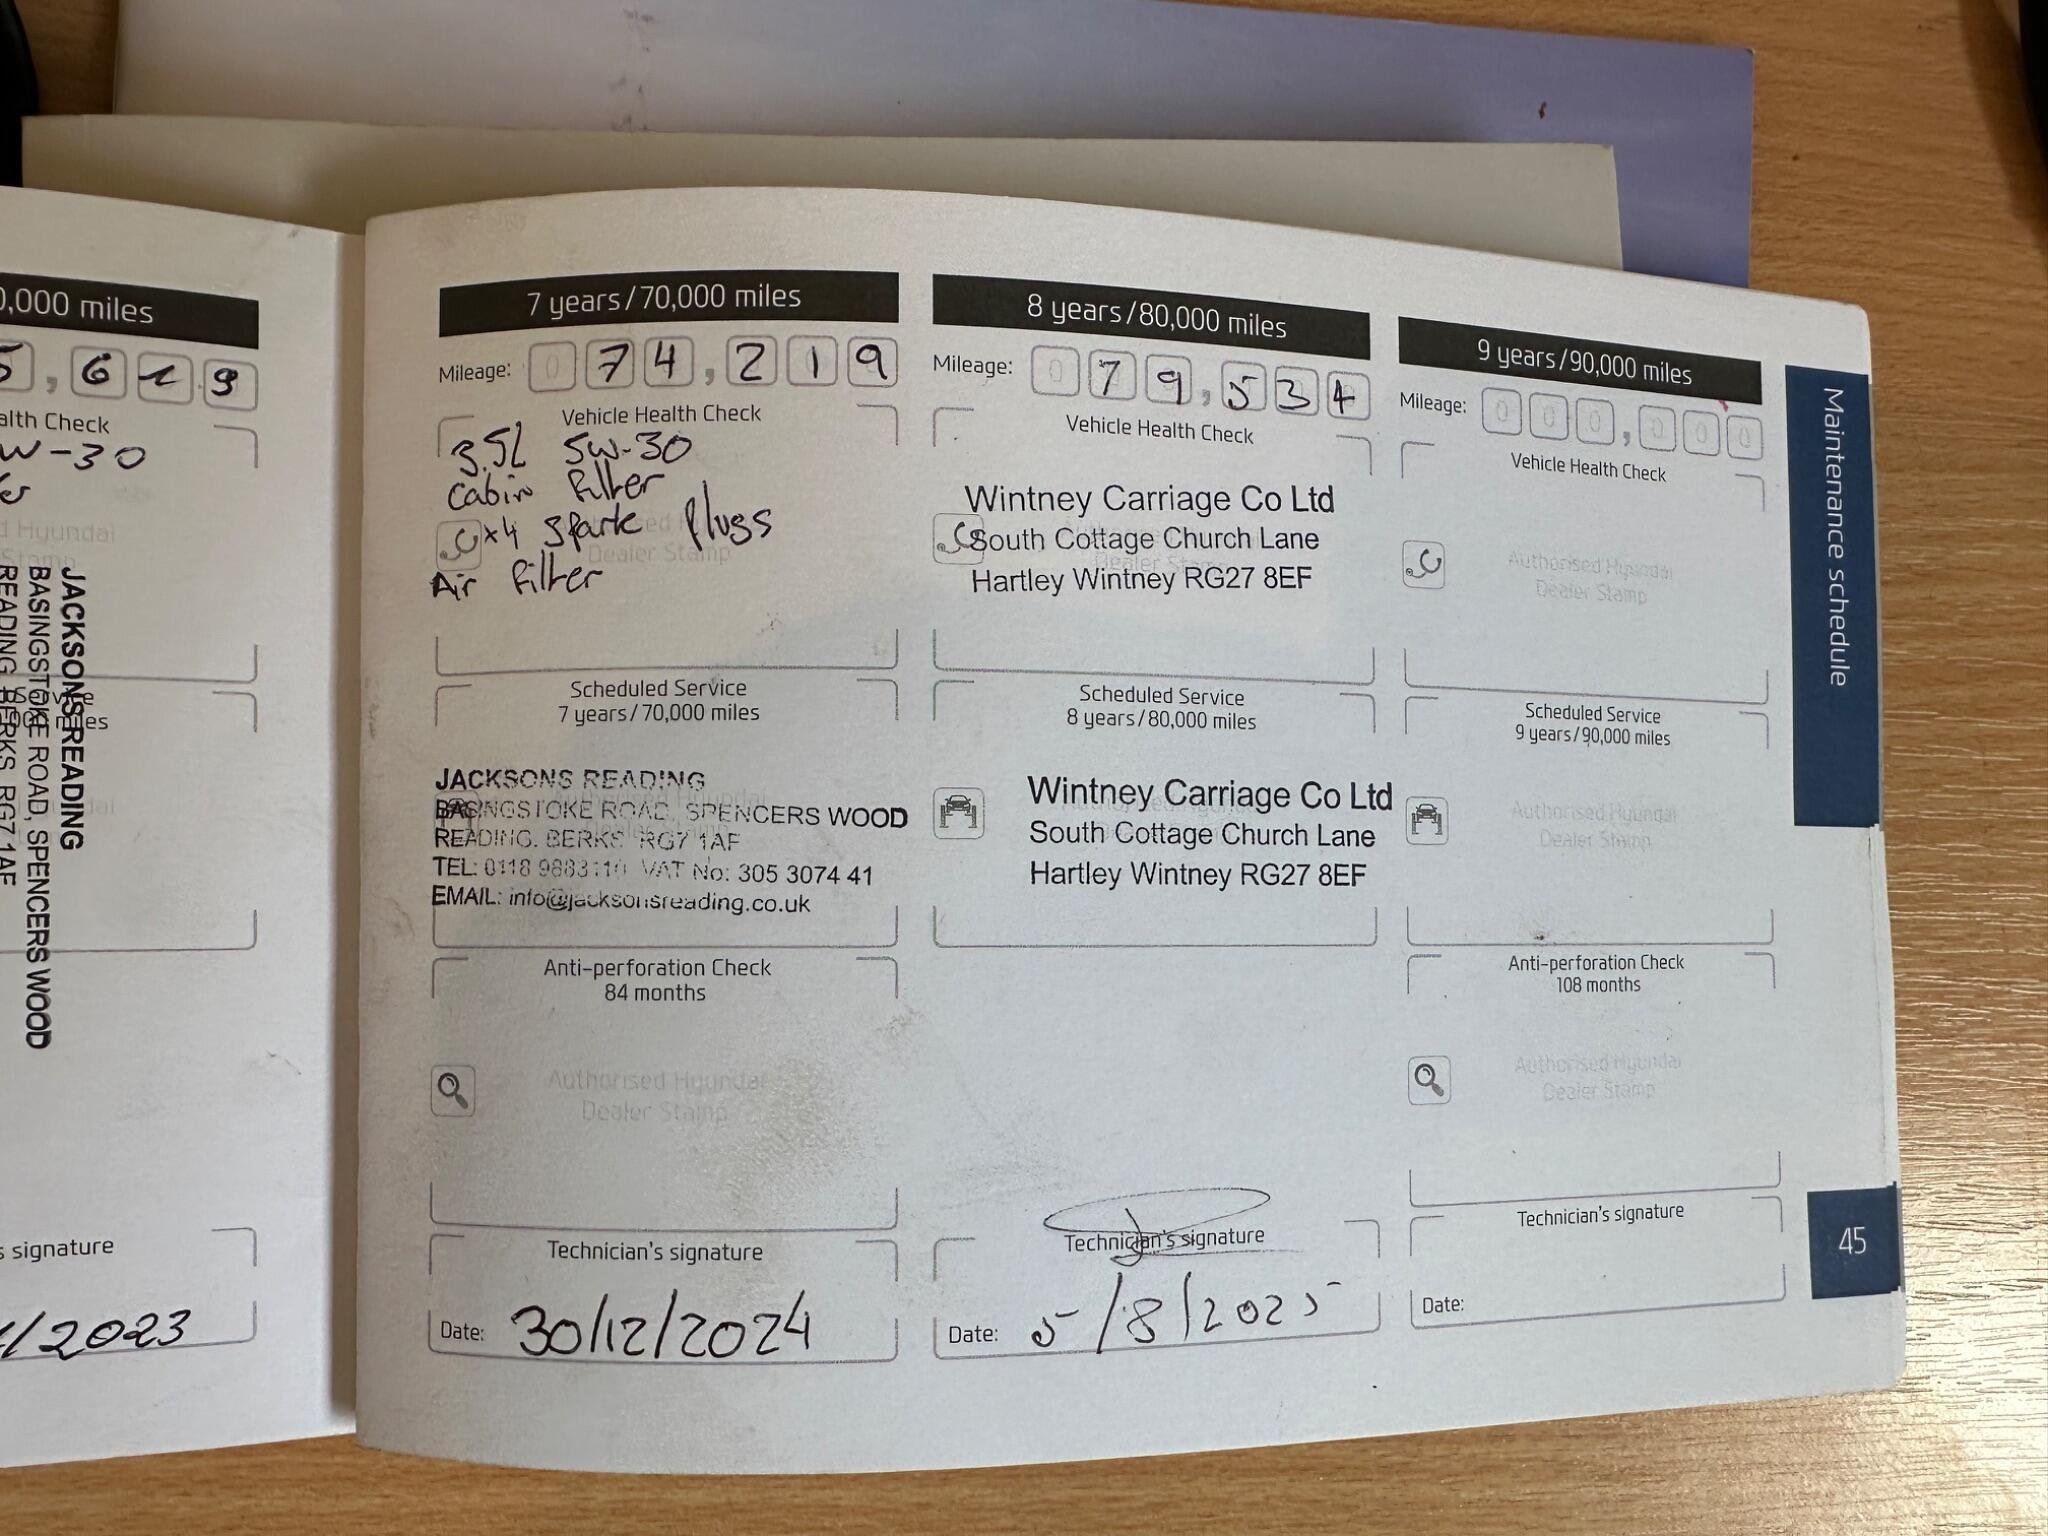 0,000 miles
5,619
alth Check
W-30
d Hyundai
Stamp
JACKSONS READING
BASINGSTOKE ROAD, SPENCERS WOOD
READING, BERKS, RG7 1AF
s signature
/2023
7 years/70,000 miles
Mileage: 074,219
Vehicle Health Check
3.5L 5W-30
Cabin filter
x4 spark plugs
Air filter
Scheduled Service
7 years/70,000 miles
JACKSONS READING
BASINGSTOKE ROAD, SPENCERS WOOD
READING. BERKS RG7 1AF
TEL: 0118 9883110 VAT No: 305 3074 41
EMAIL: info@jacksonsreading.co.uk
Anti-perforation Check
84 months
Authorised Hyundai
Dealer Stamp
Technician's signature
Date: 30/12/2024
8 years/80,000 miles
Mileage: 079,534
Vehicle Health Check
Wintney Carriage Co Ltd
South Cottage Church Lane
Hartley Wintney RG27 8EF
Scheduled Service
8 years/80,000 miles
Wintney Carriage Co Ltd
South Cottage Church Lane
Hartley Wintney RG27 8EF
Technician's signature
Date: 5/8/2025
9 years/90,000 miles
Mileage: 000,000
Vehicle Health Check
Authorised Hyundai
Dealer Stamp
Scheduled Service
9 years/90,000 miles
Authorised Hyundai
Dealer Stamp
Anti-perforation Check
108 months
Authorised Hyundai
Dealer Stamp
Technician's signature
Date:
Maintenance schedule
45